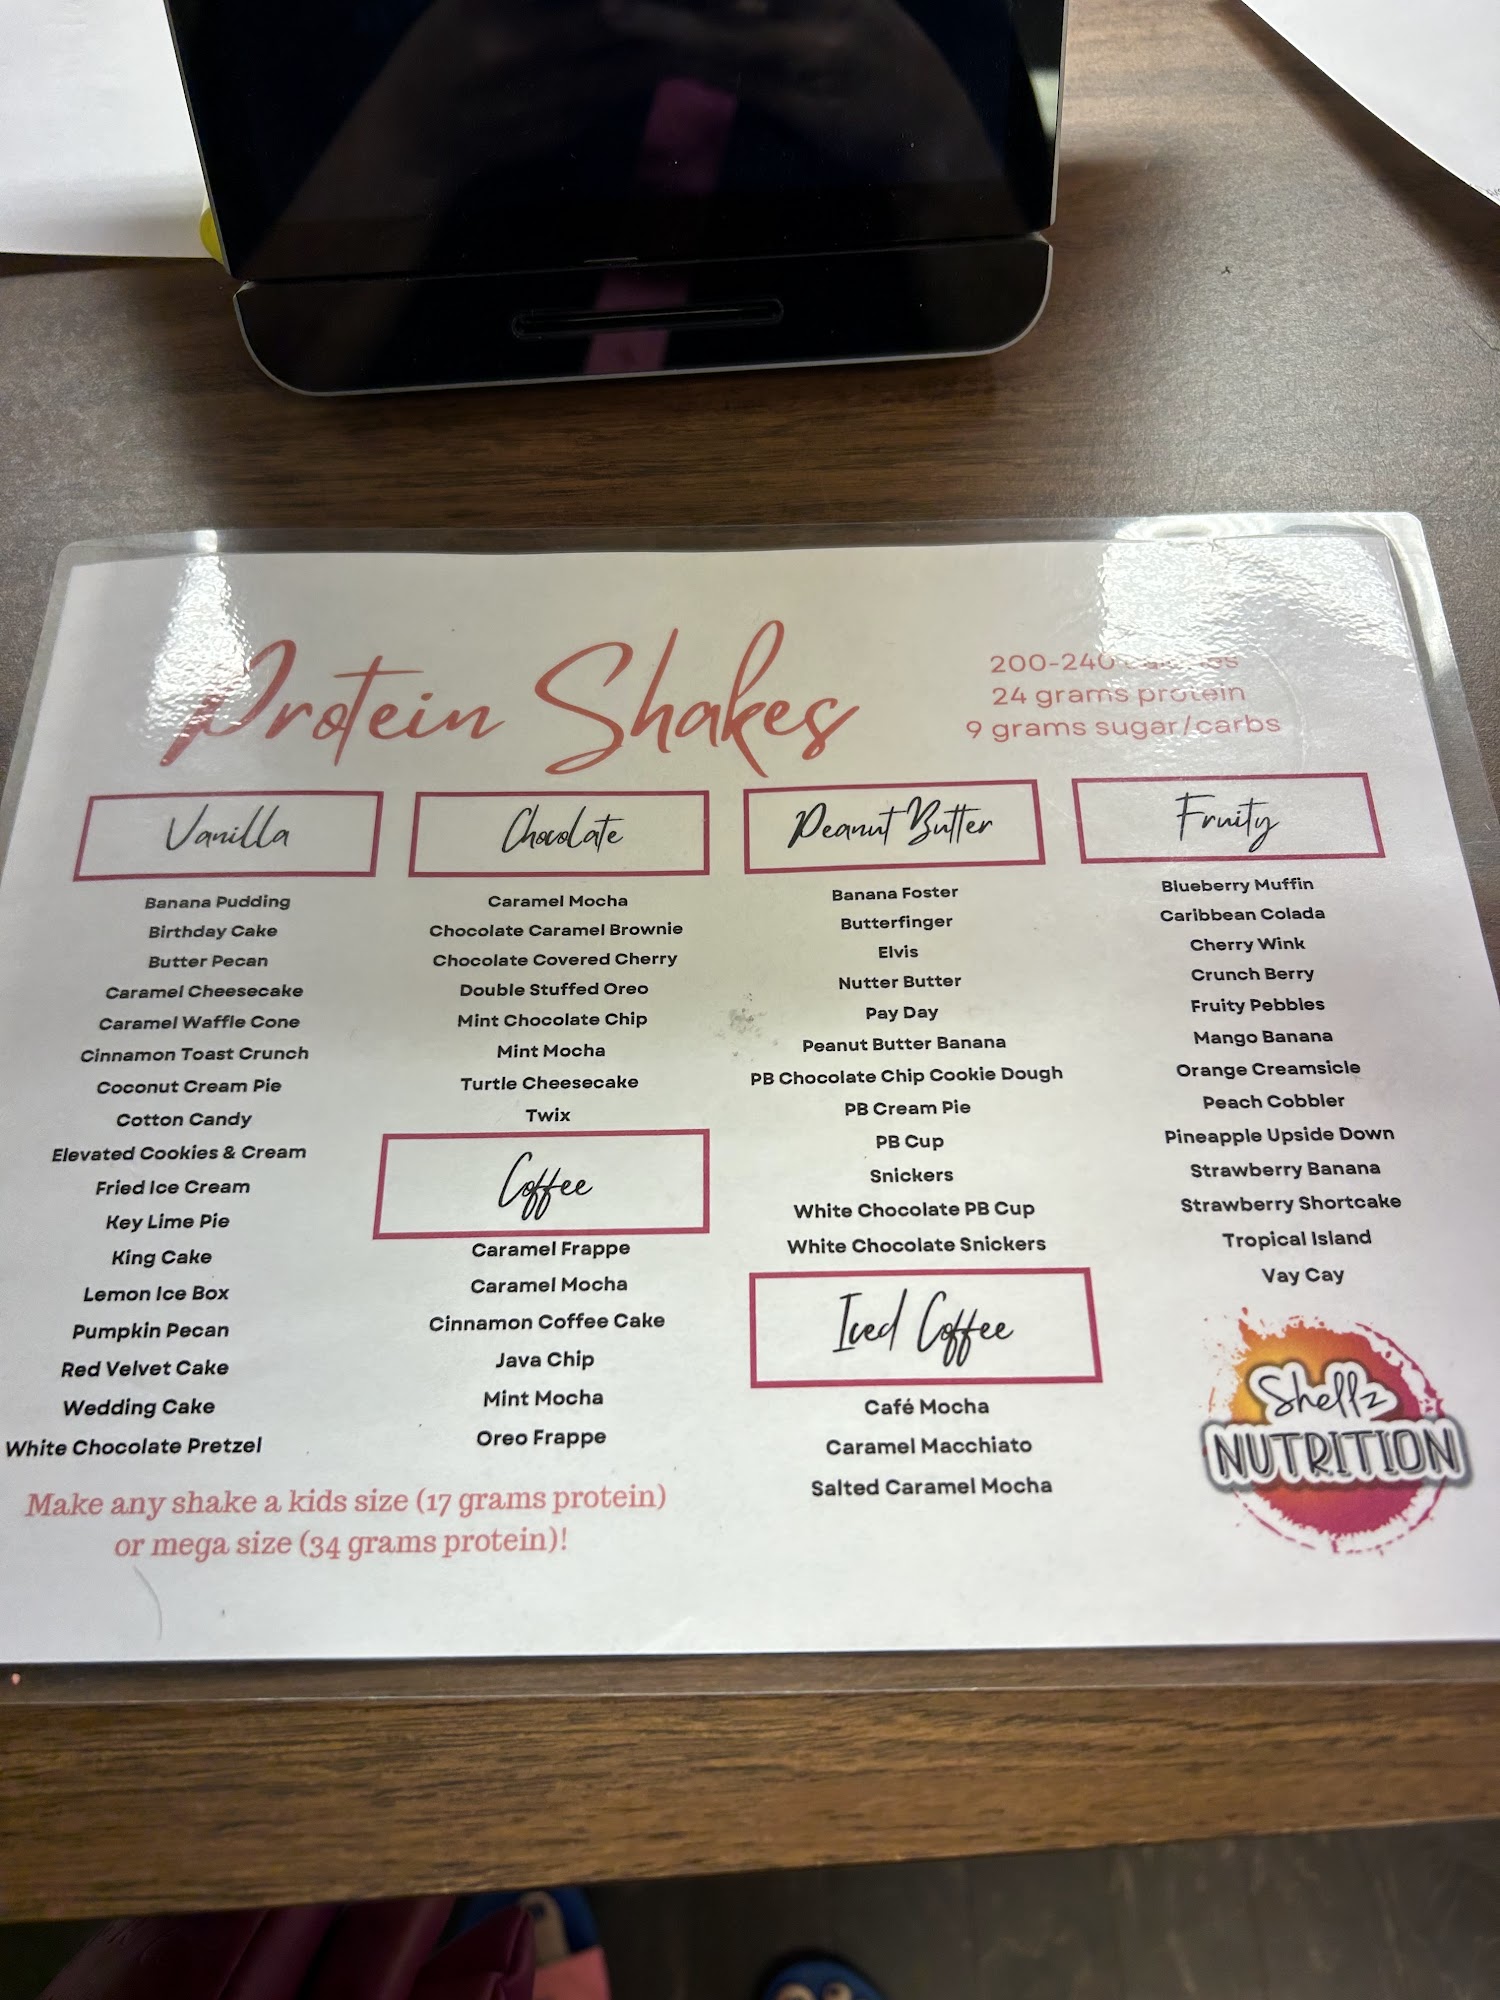 Protein Shakes
200-240 calories
24 grams protein
9 grams sugar/carbs
Vanilla
Banana Pudding
Birthday Cake
Butter Pecan
Caramel Cheesecake
Caramel Waffle Cone
Cinnamon Toast Crunch
Coconut Cream Pie
Cotton Candy
Elevated Cookies & Cream
Fried Ice Cream
Key Lime Pie
King Cake
Lemon Ice Box
Pumpkin Pecan
Red Velvet Cake
Wedding Cake
White Chocolate Pretzel
Chocolate
Caramel Mocha
Chocolate Caramel Brownie
Chocolate Covered Cherry
Double Stuffed Oreo
Mint Chocolate Chip
Mint Mocha
Turtle Cheesecake
Twix
Coffee
Caramel Frappe
Caramel Mocha
Cinnamon Coffee Cake
Java Chip
Mint Mocha
Oreo Frappe
Peanut Butter
Banana Foster
Butterfinger
Elvis
Nutter Butter
Pay Day
Peanut Butter Banana
PB Chocolate Chip Cookie Dough
PB Cream Pie
PB Cup
Snickers
White Chocolate PB Cup
White Chocolate Snickers
Iced Coffee
Café Mocha
Caramel Macchiato
Salted Caramel Mocha
Fruity
Blueberry Muffin
Caribbean Colada
Cherry Wink
Crunch Berry
Fruity Pebbles
Mango Banana
Orange Creamsicle
Peach Cobbler
Pineapple Upside Down
Strawberry Banana
Strawberry Shortcake
Tropical Island
Vay Cay
Shellz
NUTRITION
Make any shake a kids size (17 grams protein)
or mega size (34 grams protein)!